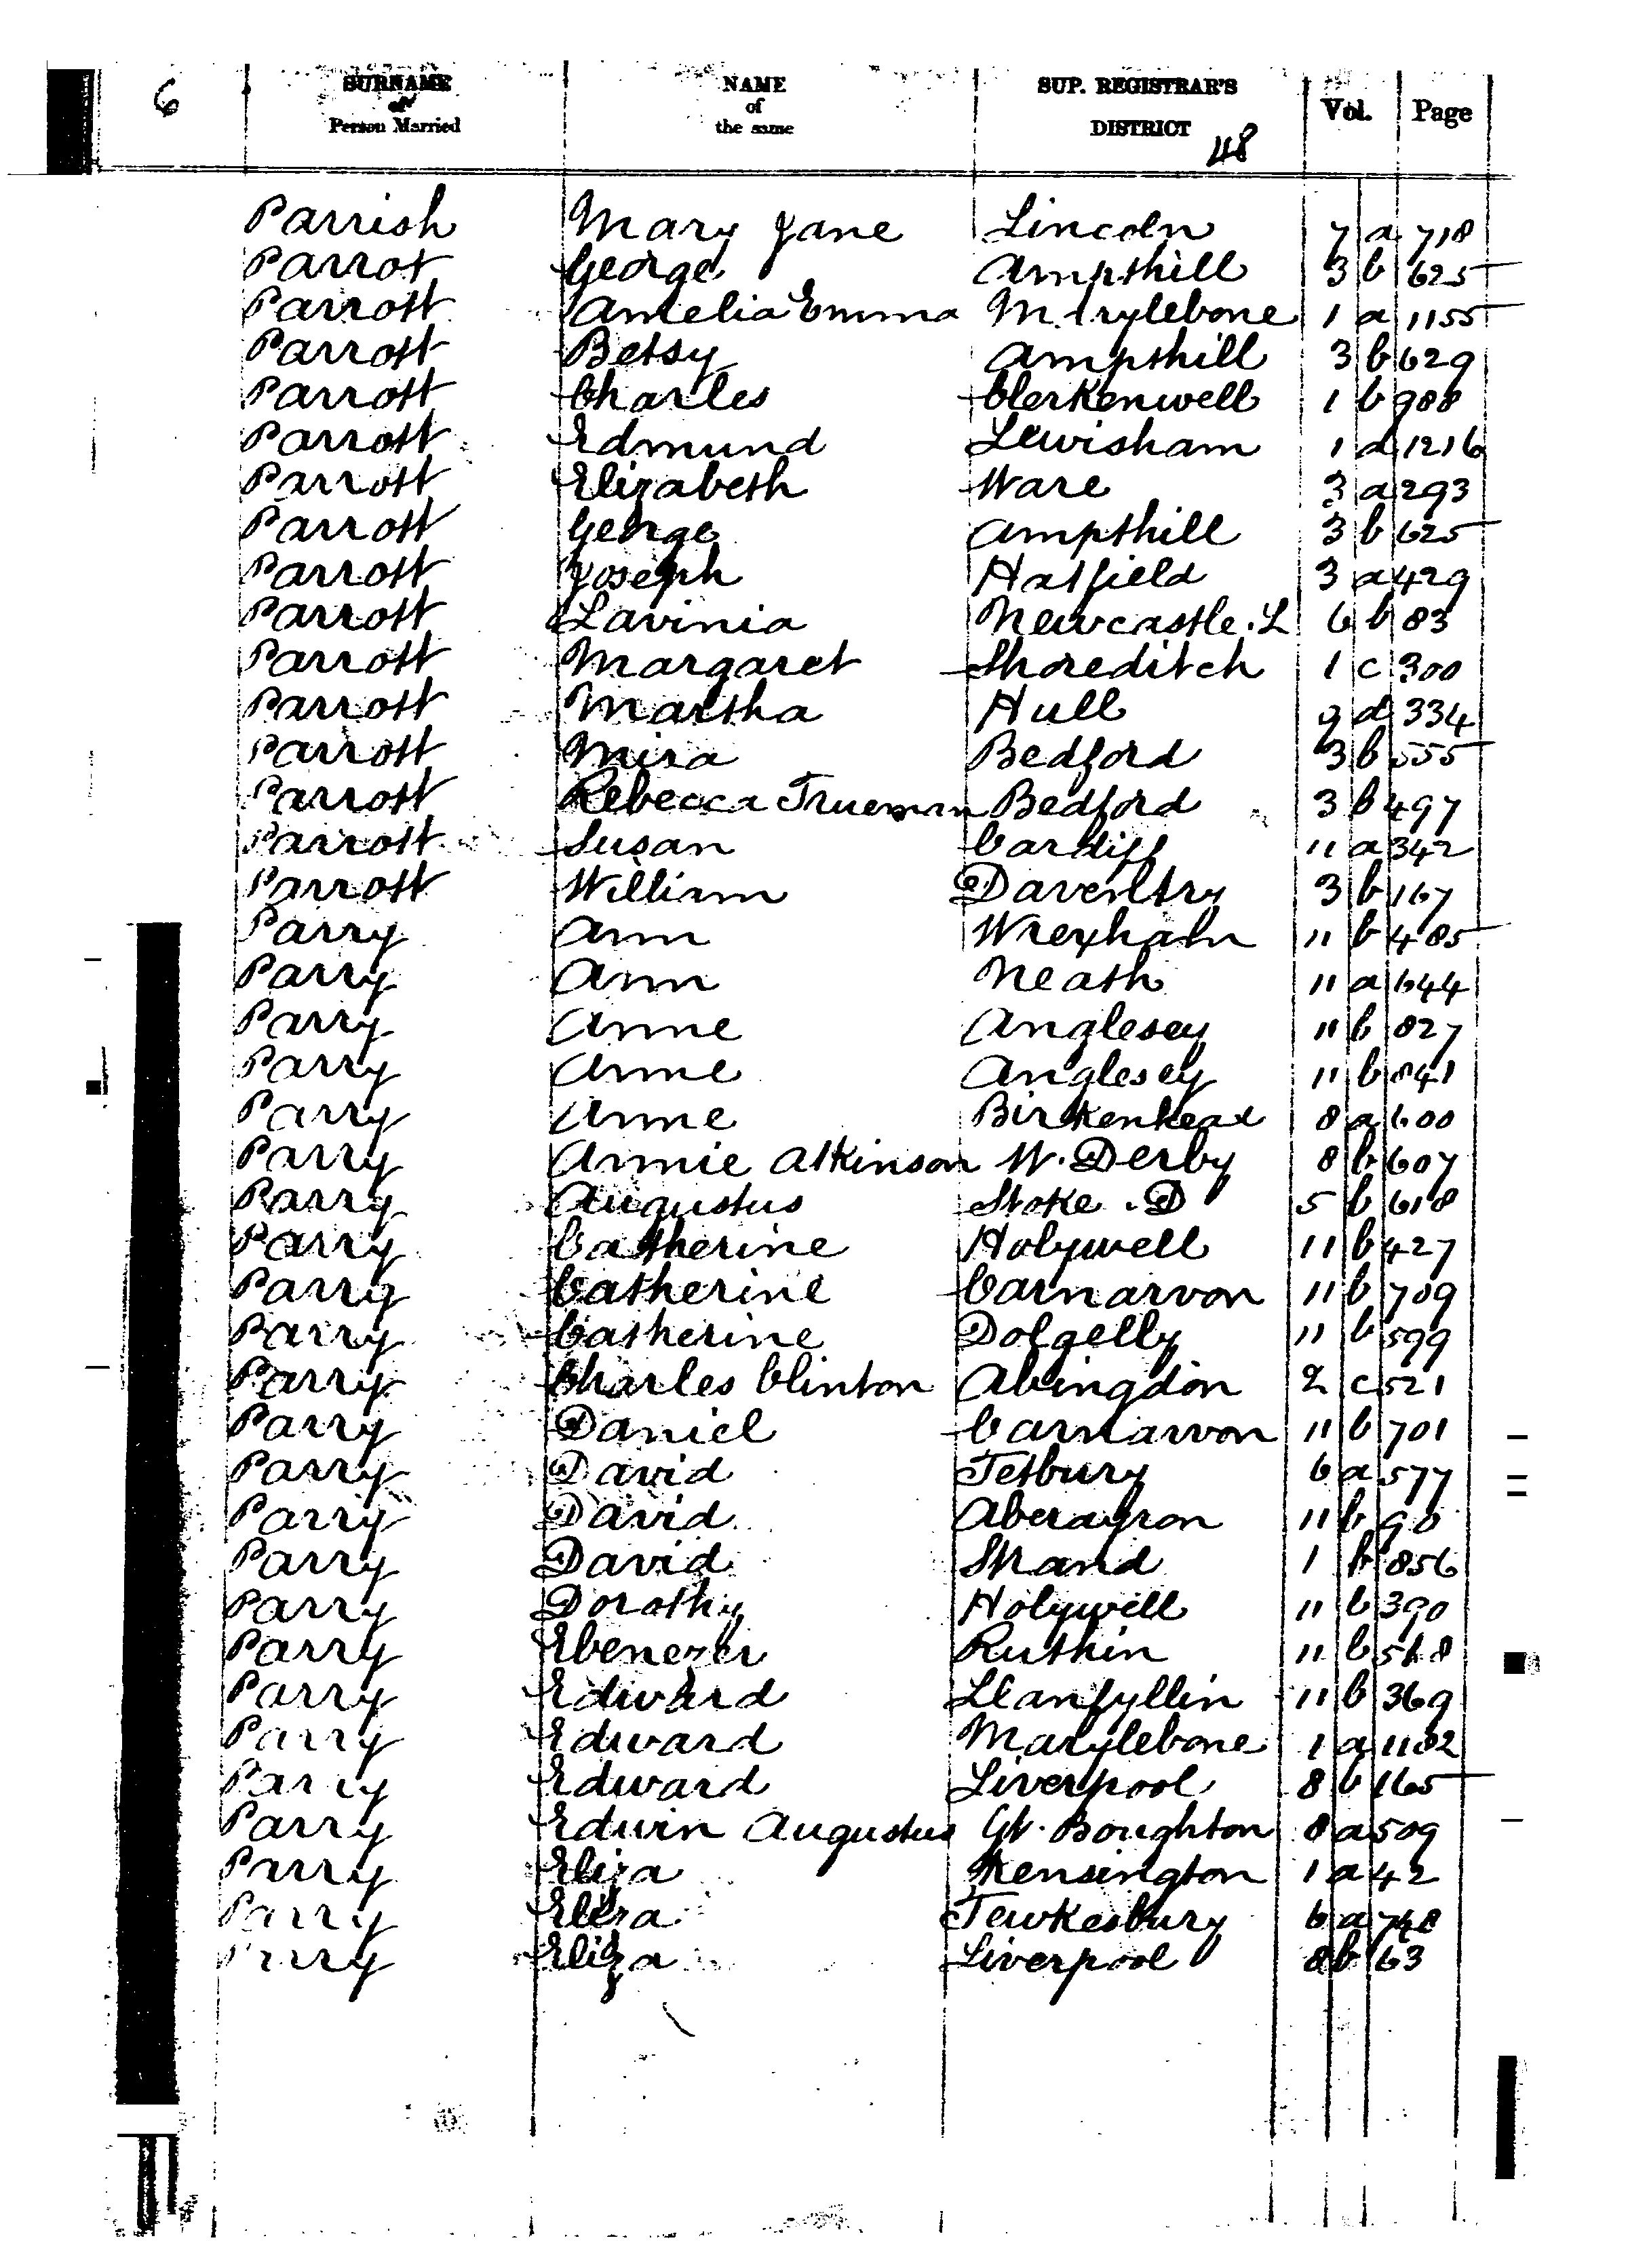 6 SURNAME of Person Married NAME of the same SUP. REGISTRAR'S DISTRICT 48 Vol. Page
Parrish Mary Jane Lincoln 7 a 718
Parrot George Ampthill 3 b 625
Parrott Amelia Emma Marylebone 1 a 1155
Parrott Betsy Ampthill 3 b 629
Parrott Charles Clerkenwell 1 b 988
Parrott Edmund Lewisham 1 d 1216
Parrott Elizabeth Ware 3 a 293
Parrott George Ampthill 3 b 625
Parrott Joseph Hatfield 3 a 429
Parrott Lavinia Newcastle.L 6 b 83
Parrott Margaret Shoreditch 1 c 300
Parrott Martha Hull 9 d 334
Parrott Mira Bedford 3 b 555
Parrott Rebecca Trueman Bedford 3 b 497
Parrott Susan Cardiff 11 a 342
Parrott William Daventry 3 b 167
Parry Ann Wrexham 11 b 485
Parry Ann Neath 11 a 644
Parry Anne Anglesey 11 b 827
Parry Anne Anglesey 11 b 841
Parry Anne Birkenhead 8 a 600
Parry Annie Atkinson W. Derby 8 b 607
Parry Augustus Stoke .D 5 b 618
Parry Catherine Holywell 11 b 427
Parry Catherine Carnarvon 11 b 709
Parry Catherine Dolgelly 11 b 599
Parry Charles Clinton Abingdon 2 c 521
Parry Daniel Carnarvon 11 b 701
Parry David Tetbury 6 a 577
Parry David Aberayron 11 b 90
Parry David Strand 1 b 856
Parry Dorothy Holywell 11 b 390
Parry Ebenezer Ruthin 11 b
Parry Edward Llanfyllin 11 b 369
Parry Edward Marylebone 1 a 1102
Parry Edward Liverpool 8 b 165
Parry Edwin Augustus Gt. Boughton 8 a 509
Parry Eliza Kensington 1 a 42
Parry Eliza Tewkesbury 6 a
Parry Eliza Liverpool 8 b 63